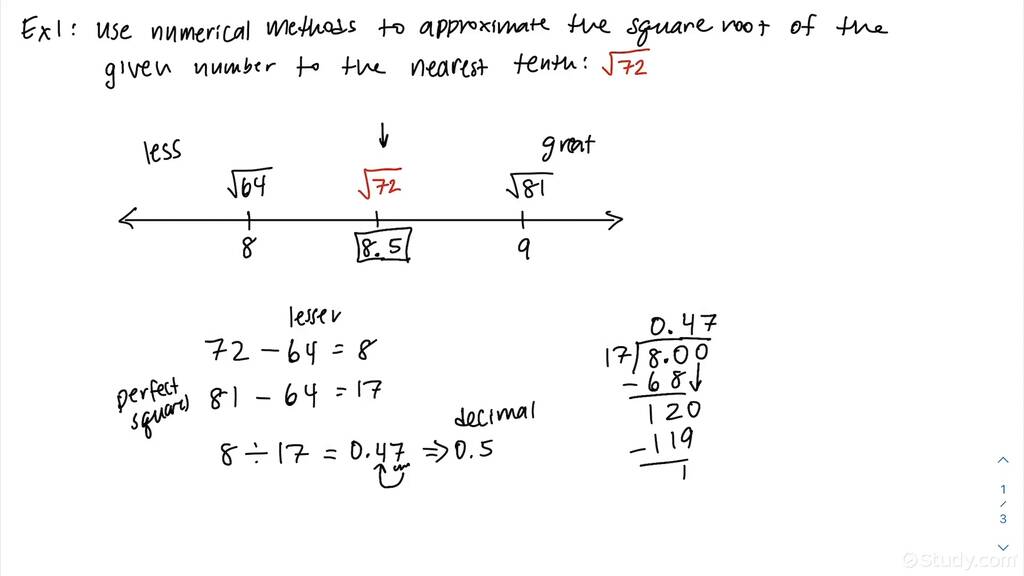 Ex1: use numerical methods to approximate the square root of the
given number to the nearest tenth: √72
less
great
√64 √72 √81
8 8.5 9
lesser
72 - 64 = 8
perfect
squares
81 - 64 = 17
decimal
8 ÷ 17 = 0.47 ⇒ 0.5
0.47
17 8.00
- 68
120
- 119
1
1
/
3
Study.com